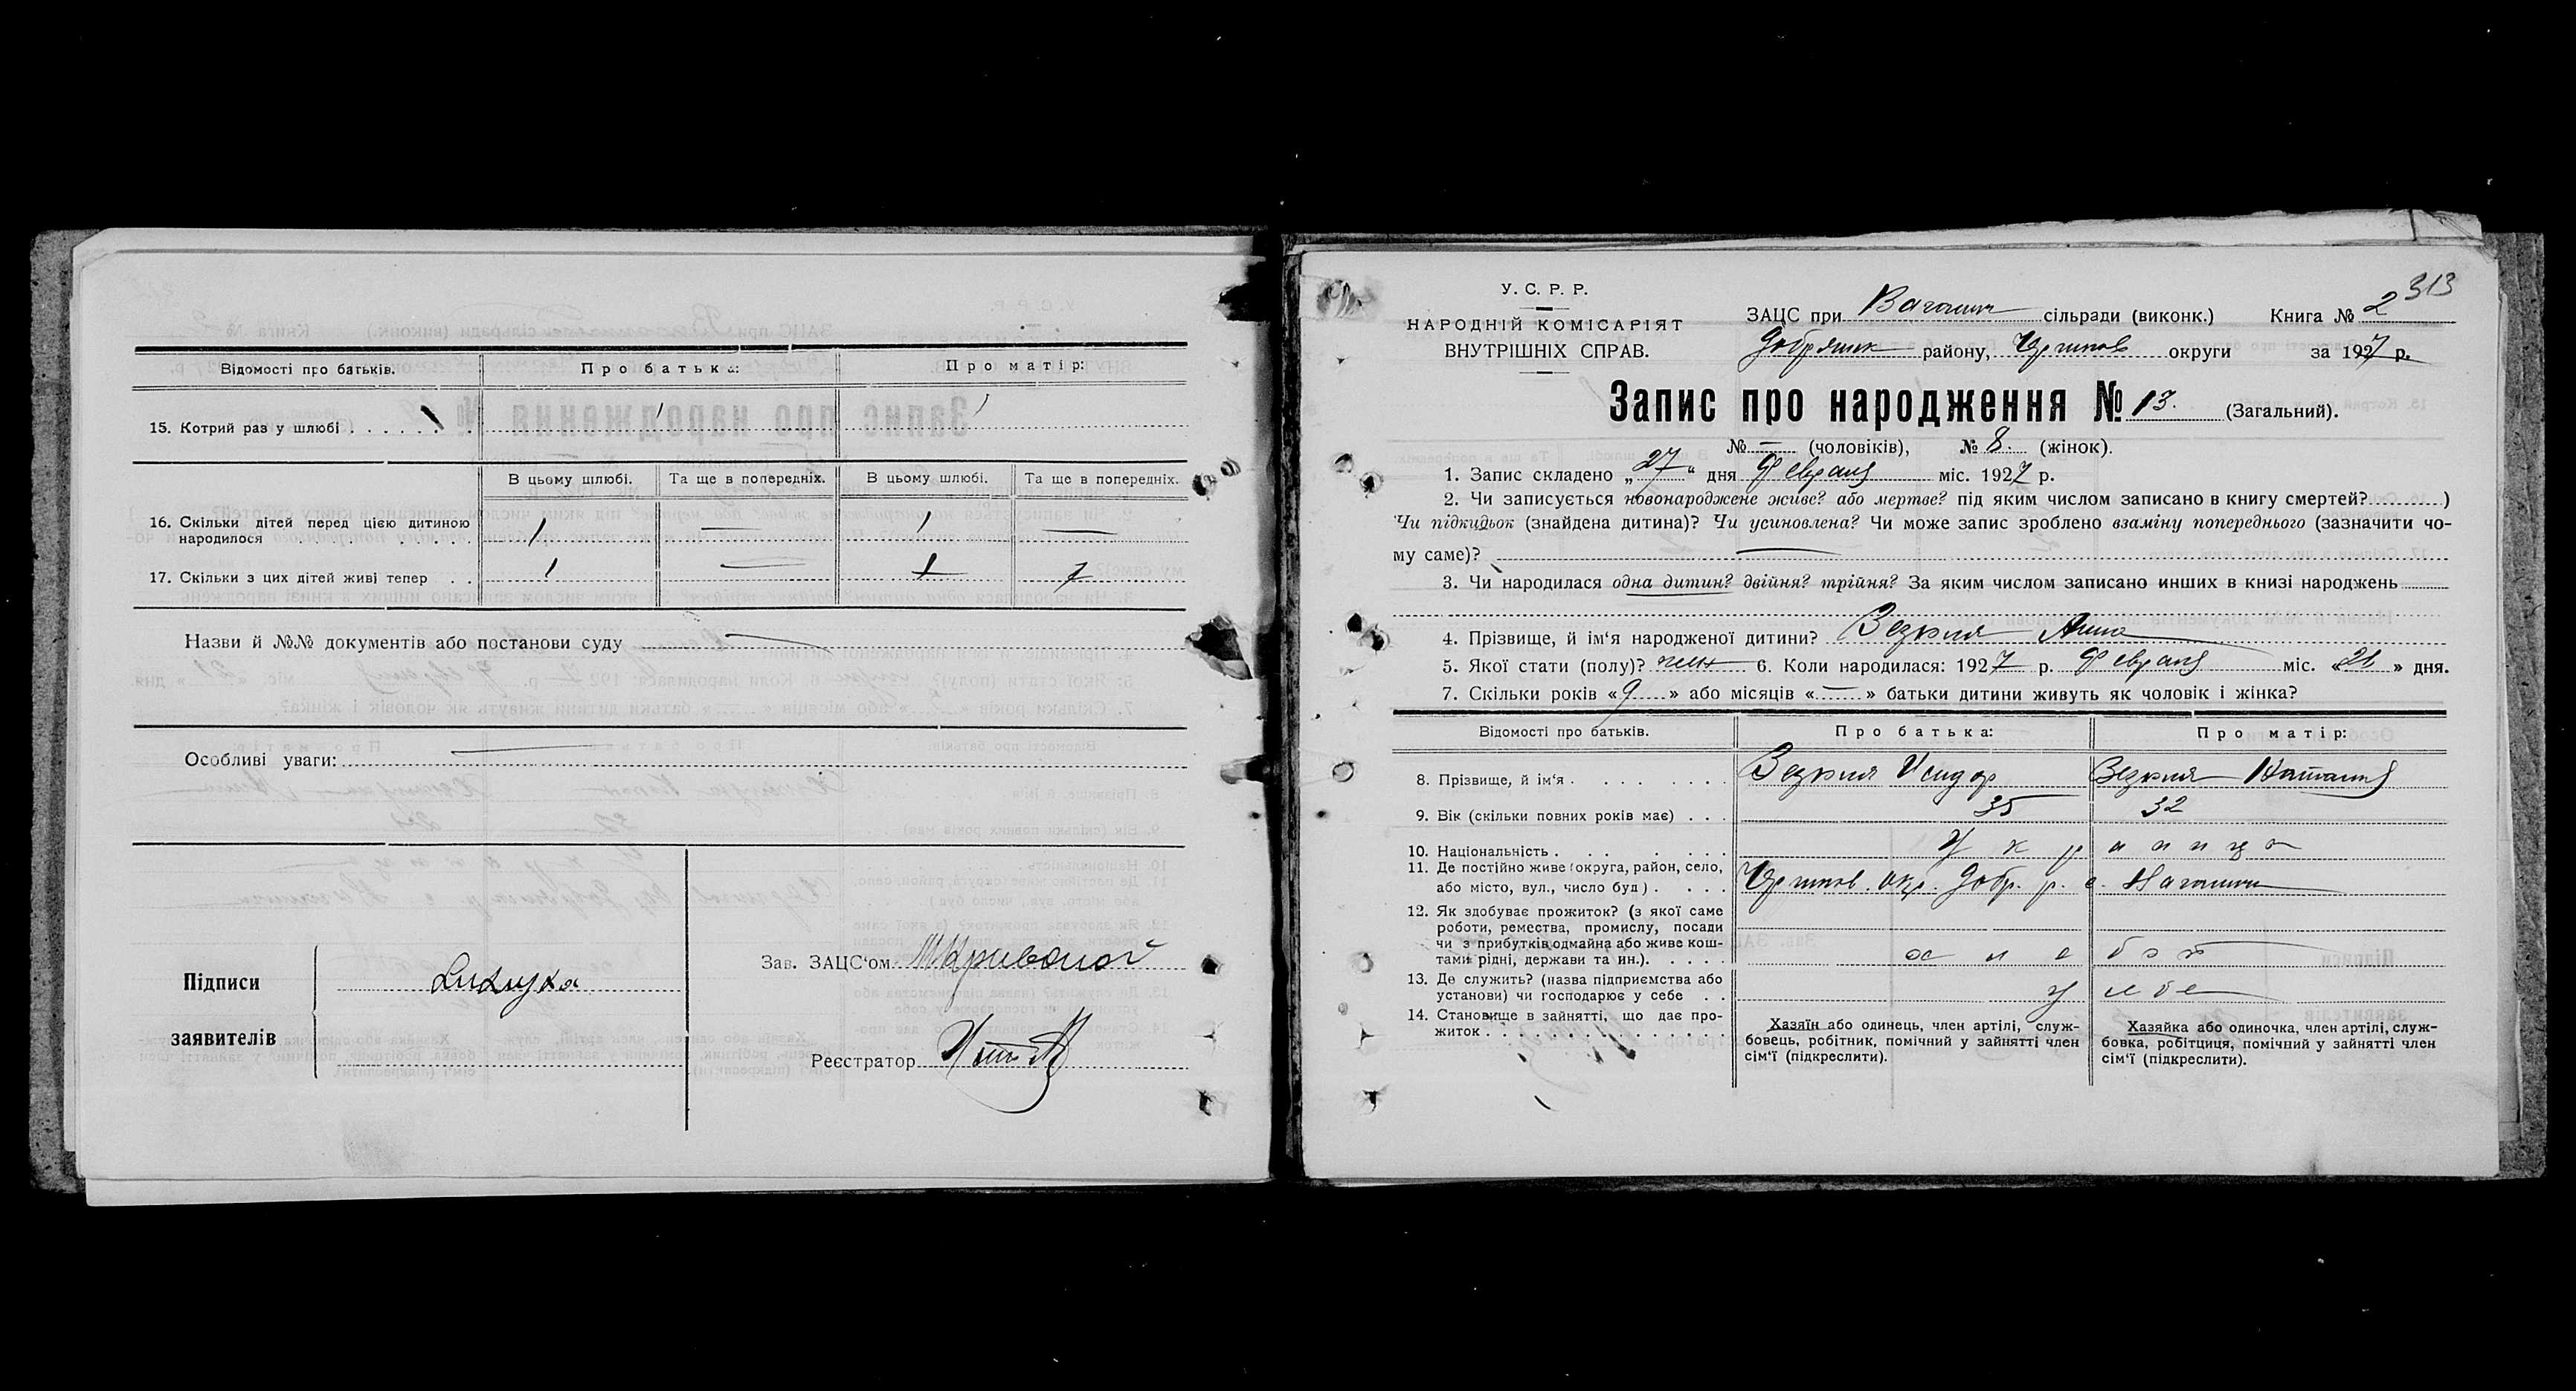 Відомості про батьків.
Про батька:
Про матір:
15. Котрий раз у шлюбі . . . . . . .
1
1
В цьому шлюбі.
Та ще в попередніх.
В цьому шлюбі.
Та ще в попередніх.
16. Скільки дітей перед цією дитиною
народилося
1 — 1 —
17. Скільки з цих дітей живі тепер . .
1 — 1
Назви й №№ документів або постанови суду —
Особливі уваги: —
Підписи
заявителів
Зав. ЗАЦС'ом МКривоной
Реєстратор
313
У. С. Р. Р.
НАРОДНІЙ КОМІСАРІЯТ
ВНУТРІШНІХ СПРАВ.
ЗАЦС при сільради (виконк.) Книга № 2
Добрянск району, Чернигов округи за 1927 р.
Запис про народження № 13. (Загальний).
№ — (чоловіків), № 8. (жінок).
1. Запис складено „27“ дня Февраля міс. 1927 р.
2. Чи записується новонароджене живе? або мертве? під яким числом записано в книгу смертей?..........)
Чи підкидьок (знайдена дитина)? Чи усиновлена? Чи може запис зроблено взаміну попереднього (зазначити чо-
му саме)? —
3. Чи народилася одна дитин? двійня? трійня? За яким числом записано инших в книзі народжень
4. Прізвище, й ім'я народженої дитини? Анна
5. Якої стати (полу)? жен 6. Коли народилася: 1927 р. Февраля міс. «21» дня.
7. Скільки років «9» або місяців «—» батьки дитини живуть як чоловік і жінка?
Відомості про батьків.
Про батька:
Про матір:
8. Прізвище, й ім'я . . . . . .
Исидор
Наталия
9. Вік (скільки повних років має) . . .
35
32
10. Національність . . . . . .
украинцы
11. Де постійно живе (округа, район, село,
або місто, вул., число буд) . . . .
Чернигов. окр. Добр. р. с.
12. Як здобуває прожиток? (з якої саме
роботи, ремества, промислу, посади
чи з прибутків,одмайна або живе кош-
тами рідні, держави та ин.). . . . .
хлебоб
13. Де служить? (назва підприємства або
установи) чи господарює у себе . .
у себе
14. Становище в зайнятті, що дає про-
житок . . . . . . . . . . . . . .
Хазяїн або одинець, член артілі, служ-
бовець, робітник, помічний у зайнятті член
сім'ї (підкреслити).
Хазяйка або одиночка, член артілі, служ-
бовка, робітциця, помічний у зайнятті член
сім'ї (підкреслити).